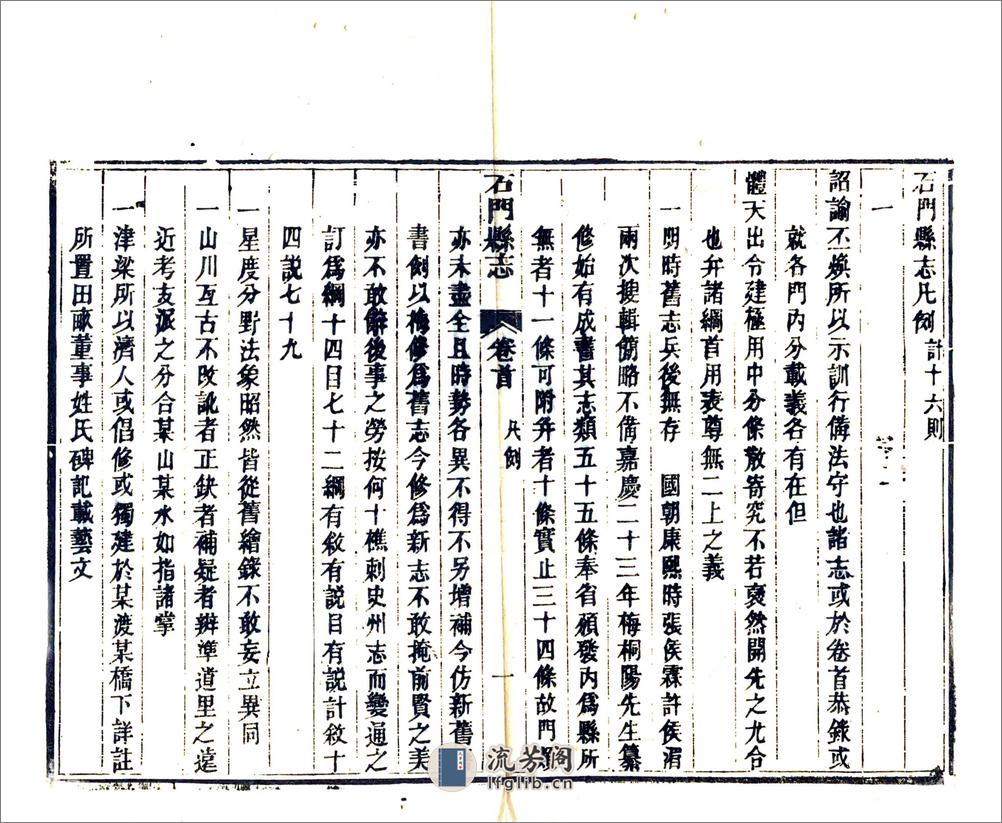 石門縣志凡例 計十六則
一
詔諭丕煥所以示訓行備法守也諸志或於卷首恭錄或
就各門内分載義各有在但
體大出令建極用中分條散寄究不若裒然開先之尤合
也弁諸綱首用表尊無二上之義
一 明時舊志兵後無存 國朝康熙時張侯霖許侯湄
兩次搜輯簡略不備嘉慶二十三年梅桐陽先生纂
修始有成書其志類五十五條奉省頒發内爲縣所
無者十一條可附弁者十條實止三十四條故門類
石門縣志 卷首 凡例 一
亦未盡全且時勢各異不得不另增補今仿新舊唐
書例以梅修爲舊志今修爲新志不敢掩前賢之美
亦不敢辭後事之勞按何十樵刺史州志而變通之
訂爲綱十四目七十二綱有敘有說目有說計敘十
四說七十九
一 星度分野法象昭然皆從舊繪錄不敢妄立異同
一 山川亙古不改訛者正缺者補疑者辨準道里之遠
近考支派之分合某山某水如指諸掌
一 津梁所以濟人或倡修或獨建於某渡某橋下詳註
所置田畝董事姓氏碑記載藝文
流芳阁
lfglib.cn